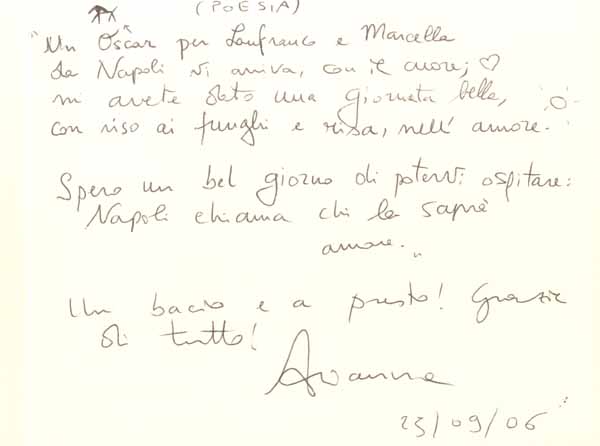 (POESIA)
"Un Oscar per Lanfranco e Marcella
da Napoli vi arriva, con il cuore;
mi avete dato una giornata bella,
con riso ai funghi e risa, nell'amore.
Spero un bel giorno di potervi ospitare:
Napoli chiama chi la saprà
amare."
Un bacio e a presto! Grazie
di tutto!
23/09/06